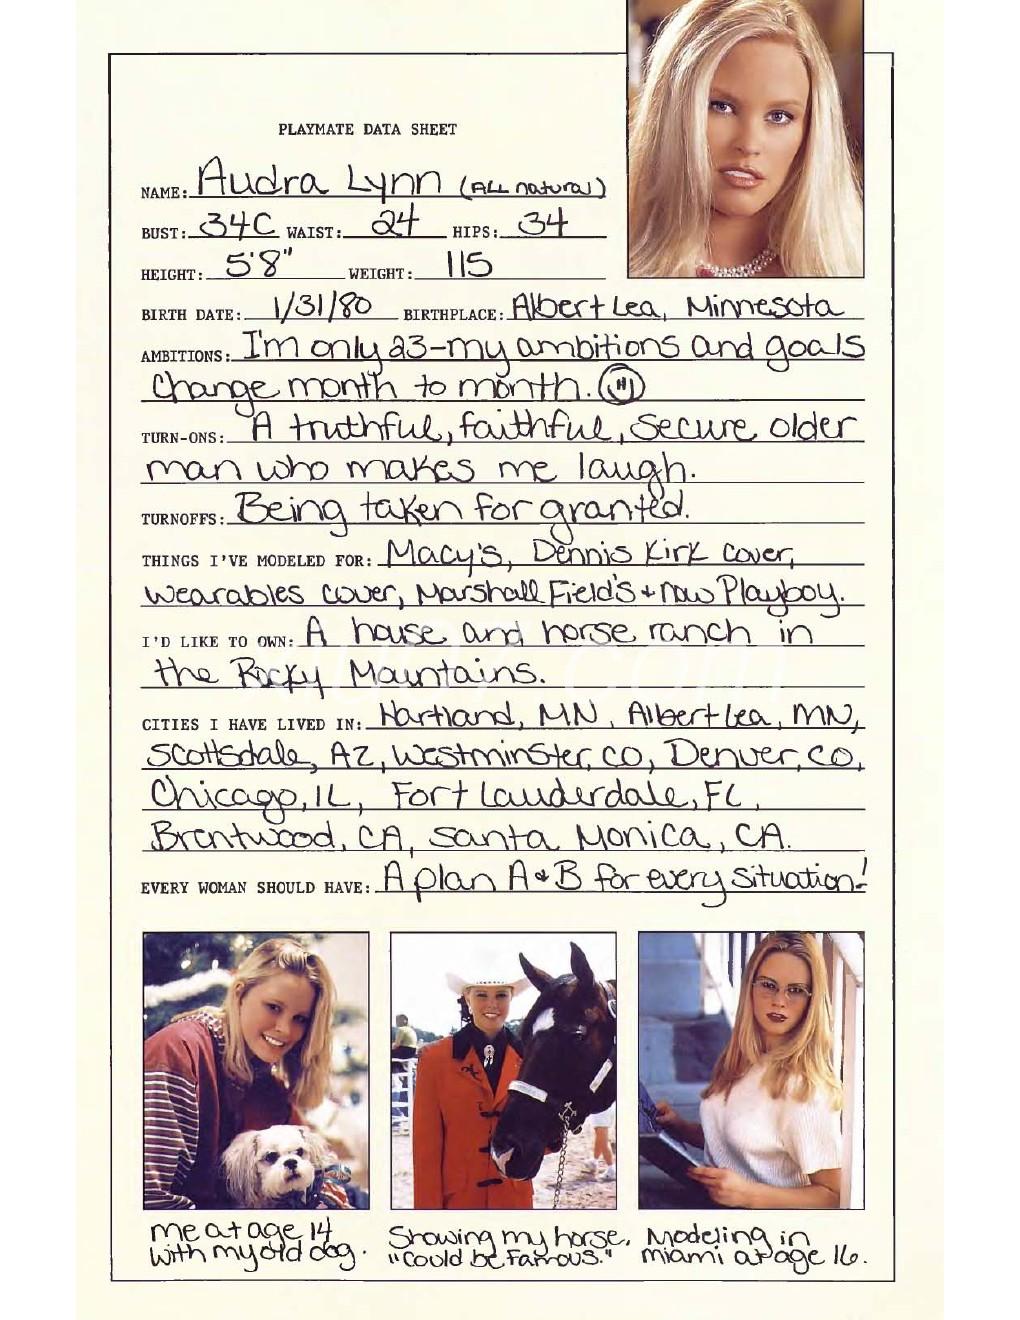 PLAYMATE DATA SHEET
NAME: Audra Lynn (ALL natural)
BUST: 34C WAIST: 24 HIPS: 34
HEIGHT: 5'8" WEIGHT: 115
BIRTH DATE: 1/31/80 BIRTHPLACE: Albert Lea, Minnesota
AMBITIONS: I'm only 23-my ambitions and goals
change month to month.
TURN-ONS: A truthful, faithful, secure older
man who makes me laugh.
TURNOFFS: Being taken for granted.
THINGS I'VE MODELED FOR: Macy's, Dennis Kirk cover,
Wearables cover, Marshall Field's + now Playboy.
I'D LIKE TO OWN: A house and horse ranch in
the Rocky Mountains.
CITIES I HAVE LIVED IN: Hartland, MN, Albert Lea, MN,
Scottsdale, AZ, Westminster, CO, Denver, CO,
Chicago, IL, Fort Lauderdale, FL,
Brentwood, CA, Santa Monica, CA.
EVERY WOMAN SHOULD HAVE: A plan A & B for every situation!
me at age 14
with my old dog.
Showing my horse,
"Could be Famous."
Modeling in
miami at age 16.